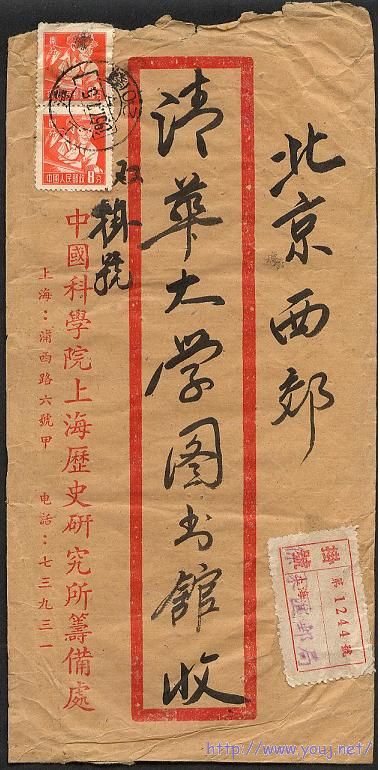 北京西郊
清華大学图书館收
双掛號
中國科學院上海歷史研究所籌備處
上海：浦西路六號甲 电話：七三九三一
中國人民郵政
8分
掛號
第1244號
上海
郵局
http://www.youj.net/